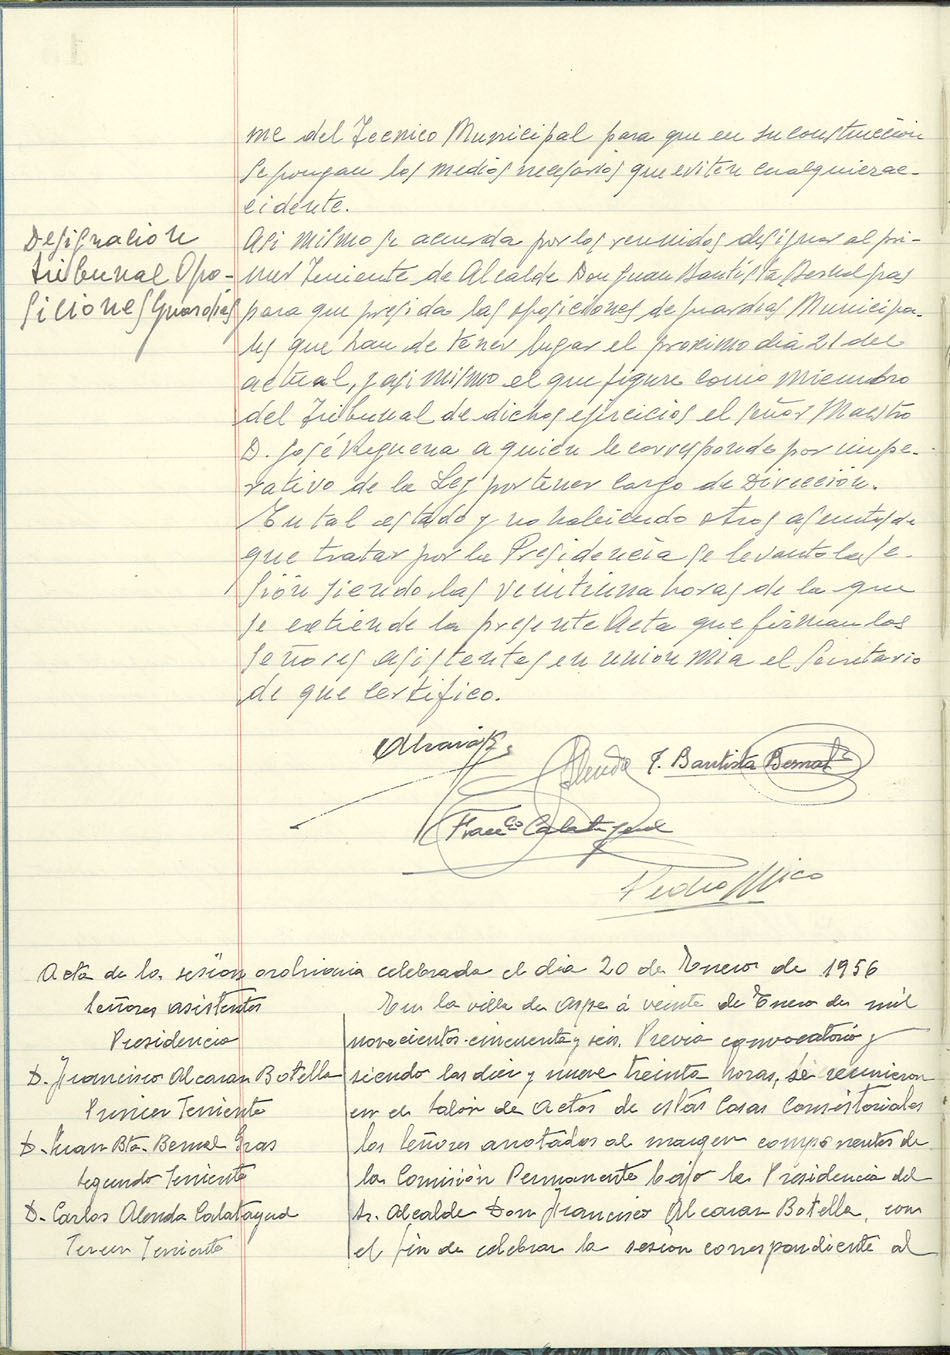 me del Tecnico Municipal para que en su construccion
se pongan los medios necesarios que eviten cualquier ac-
cidente.
Designacion
tribunal Opo-
siciones Guardias
Asi mismo se acuerda por los reunidos designar al pri-
mer Teniente de Alcalde Don Juan Bautista Bernal Gras
para que presida las oposiciones de guardias Municipa-
les que han de tener lugar el proximo dia 21 del
actual, y asi mismo el que figure como miembro
del Tribunal de dichos ejercicios el señor Maestro
D. José Requena a quien le corresponde por impe-
rativo de la Ley por tener cargo de Dirección.
En tal estado y no habiendo otros asuntos de
que tratar por la Presidencia se levanto la se-
sión siendo las veintiuna horas de la que
se extiende la presente Acta que firman los
señores asistentes en union mia el Secretario
de que certifico.
Alcaraz
Alenda
J. Bautista Bernal
Fracco Calatayud
Pedro Mico
Acta de la sesión ordinaria celebrada el dia 20 de Enero de 1956
Señores asistentes
Presidencia
D. Francisco Alcaraz Botella
Primer Teniente
D. Juan Bta. Bernal Gras
Segundo Teniente
D. Carlos Alenda Calatayud
Tercer Teniente
En la villa de Aspe á veinte de Enero de mil
novecientos cincuenta y seis. Previa convocatoria y
siendo las diez y nueve treinta horas, se reunieron
en el Salón de Actos de estas Casas Consistoriales
los Señores anotados al margen componentes de
la Comisión Permanente bajo la Presidencia del
Sr. Alcalde Don Francisco Alcaraz Botella, con
el fin de celebrar la sesión correspondiente al